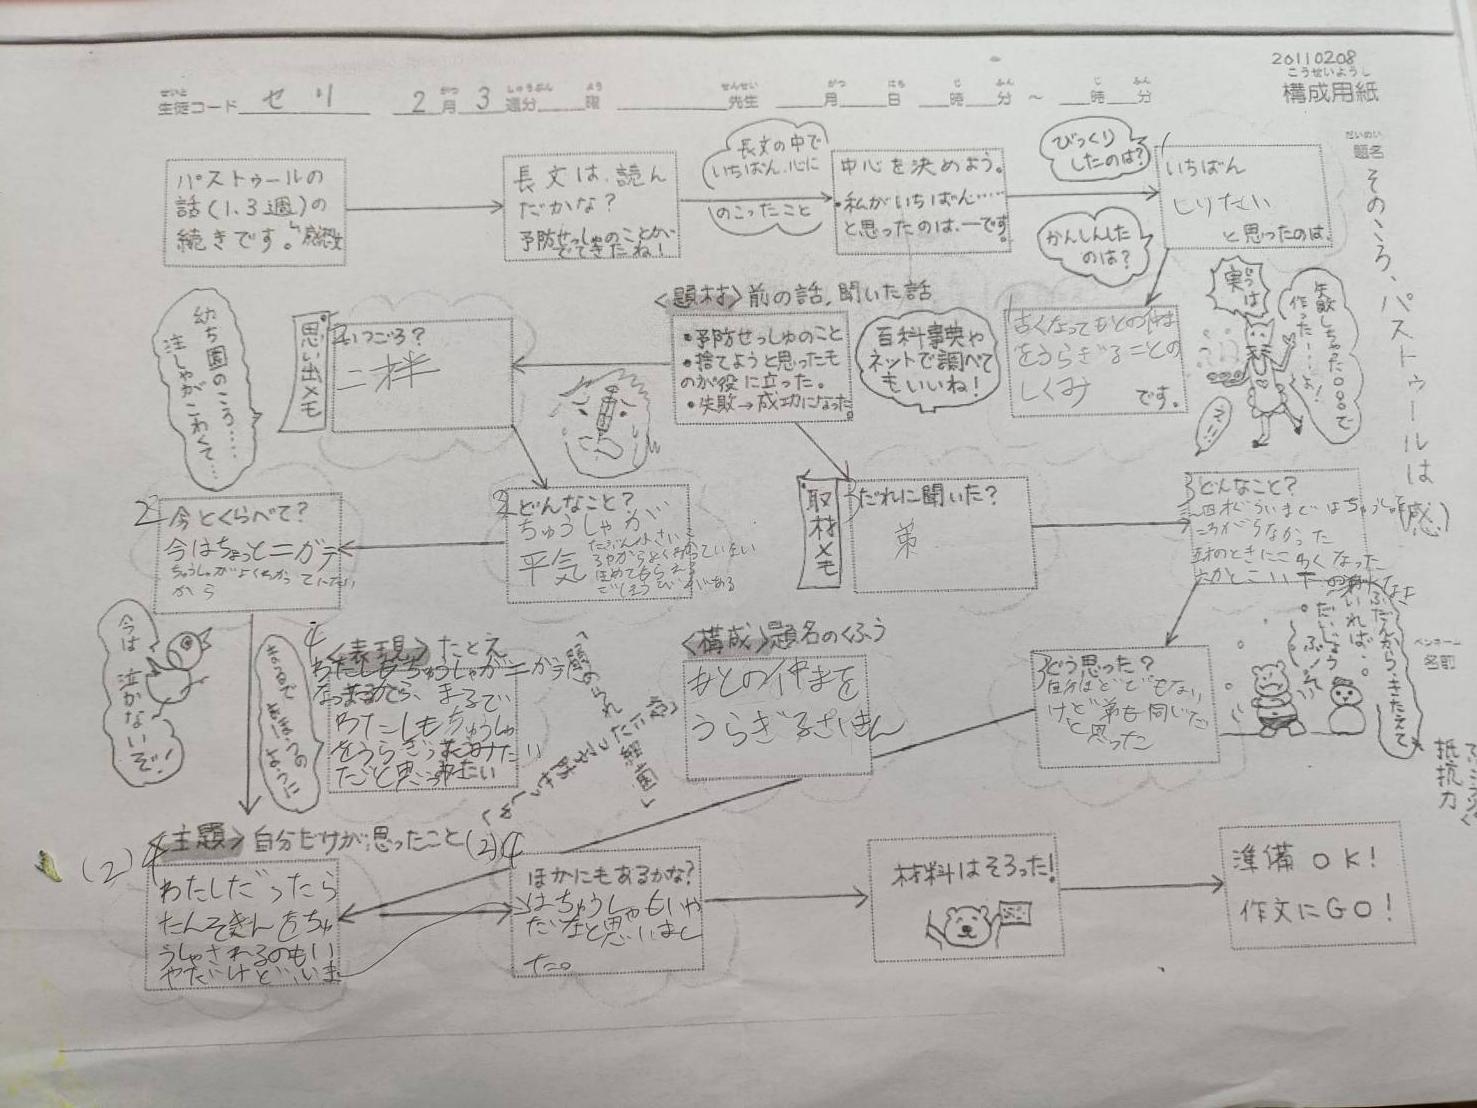 20110208
こうせいようし
構成用紙
せいと がつ しゅうぶん よう せんせい がつ にち じ ふん じ ふん
生徒コード セリ 2月3週分 曜 先生 月 日 時 分 ～ 時 分
だいめい
題名
そのころ、パストゥールは
(感)
パストゥールの
話(1.3週)の
続きです。感想文
長文は、読ん
だかな?
予防せっしゅのことが
でてきたね!
長文の中で
いちばん、心に
のこったこと
中心を決めよう。
・私がいちばん……
と思ったのは、…です。
びっくり
したのは?
かんしんした
のは?
いちばん
しりたい
と思ったのは
実は
失敗しちゃった○○○で
作った……よ!
古くなってもとの仲ま
をうらぎることの
しくみ
です。
百科事典や
ネットで調べて
もいいね!
<題材>前の話,聞いた話
・予防せっしゅのこと
・捨てようと思ったも
のが役に立った。
・失敗→成功になった。
思い出メモ
いつごろ?
幼ち園のころ……
注しゃがこわくて…
2どんなこと?
ちゅうしゃが
平気
ほめてもらえる
ごほうびがある
2今とくらべて?
今はちょっとニガテ
ちゅうしゃがよくわかって
から
今は
泣かないぞ!
取材メモ
だれに聞いた?
弟
3どんなこと?
ころがらなかった
ふだんから、きたえて
おいれば…
だいじょう
ぶ!
ペンネーム
名前
抵抗力
3どう思った?
けど弟も同じだ
と思った
<構成>題名のくふう
もとの仲まを
うらぎるさいきん
4
<表現>たとえ
わたしもちゅうしゃがニガテに
まるで
わたしもちゅうしゃ
をうらぎった
まるで
のように
<主題>自分だけが思ったこと(2)4
(2)4
わたしだったら
たんそきんをちゅ
うしゃされるのもい
やだけどいま
ほかにもあるかな?
はちゅうしゃもいや
だなと思いまし
た。
材料はそろった!
準備OK!
作文にGO!